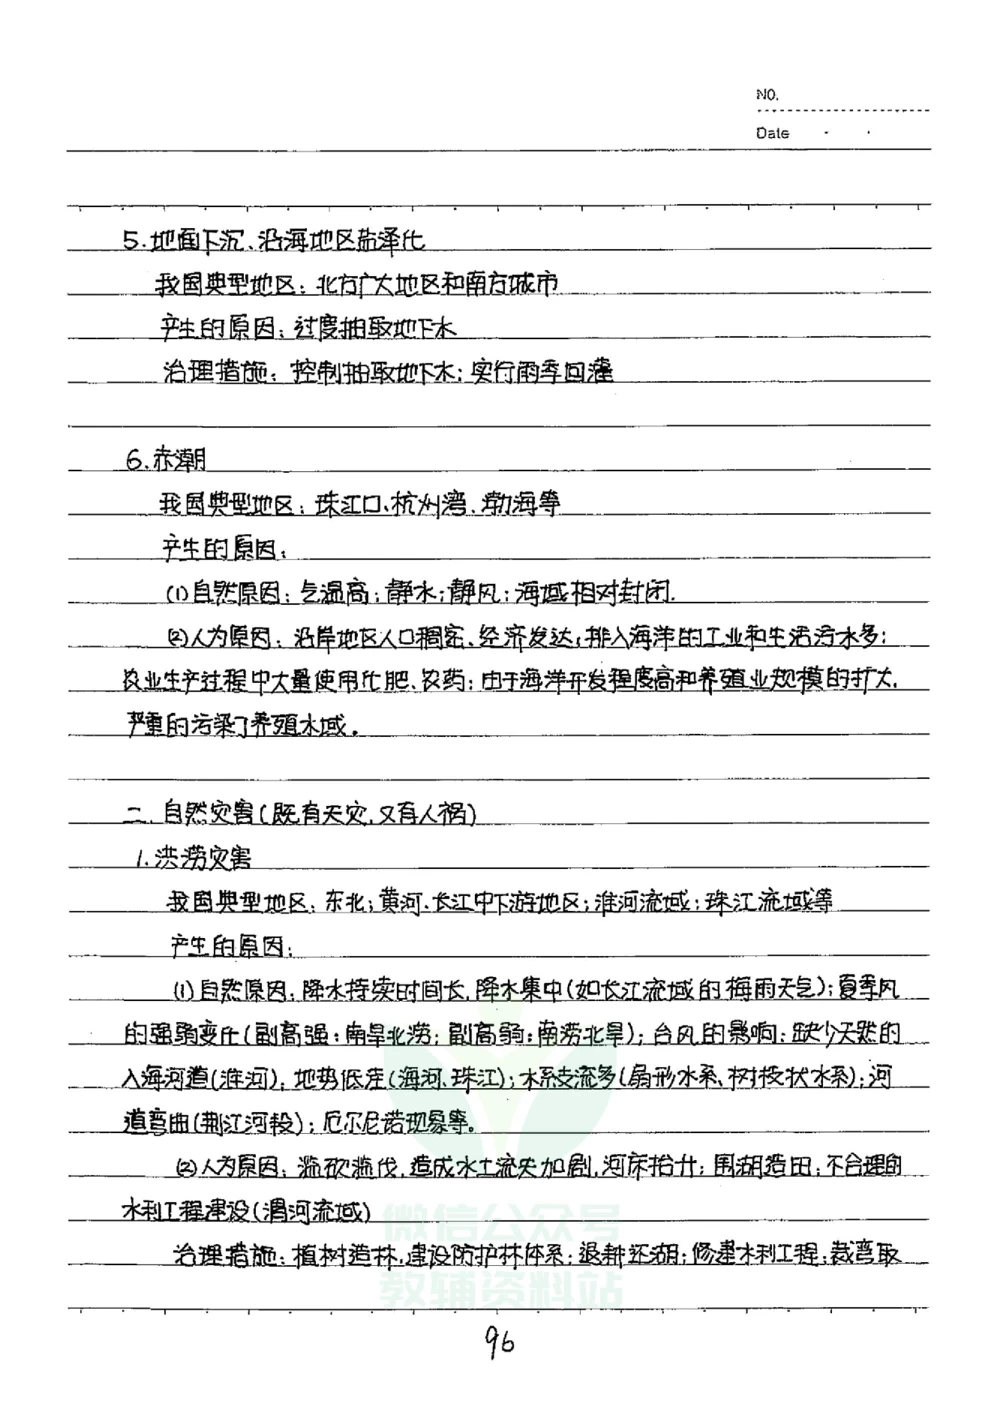 NO.
Date
5.地面下沉、沿海地区盐泽化
我国典型地区:北方广大地区和南方城市
产生的原因:过度抽取地下水
治理措施:控制抽取地下水;实行雨季回灌
6.赤潮
我国典型地区:珠江口、杭州湾、渤海等
产生的原因:
(1)自然原因:气温高;静水;静风;海域相对封闭.
(2)人为原因:沿岸地区人口稠密、经济发达,排入海洋的工业和生活污水多;
农业生产过程中大量使用化肥、农药;由于海洋开发程度高和养殖业规模的扩大,
严重的污染了养殖水域。
二.自然灾害(既有天灾,又有人祸)
1.洪涝灾害
我国典型地区:东北;黄河、长江中下游地区;淮河流域;珠江流域等
产生的原因:
(1)自然原因:降水持续时间长,降水集中(如长江流域的梅雨天气);夏季风
的强弱变化(副高强:南旱北涝;副高弱:南涝北旱);台风的影响;缺少天然的
入海河道(淮河);地势低洼(海河、珠江);水系支流多(扇形水系、树枝状水系);河
道弯曲(荆江河段);厄尔尼诺现象等。
(2)人为原因:滥砍滥伐,造成水土流失加剧,河床抬升;围湖造田;不合理的
水利工程建设(渭河流域)
治理措施:植树造林,建设防护林体系;退耕还湖;修建水利工程;裁弯取
微信公众号
教辅资料站
96